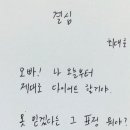 결심
최대호
오빠! 나 오늘부터
제대로 다이어트 할거야.
못 믿겠다는 그 표정 뭐야?